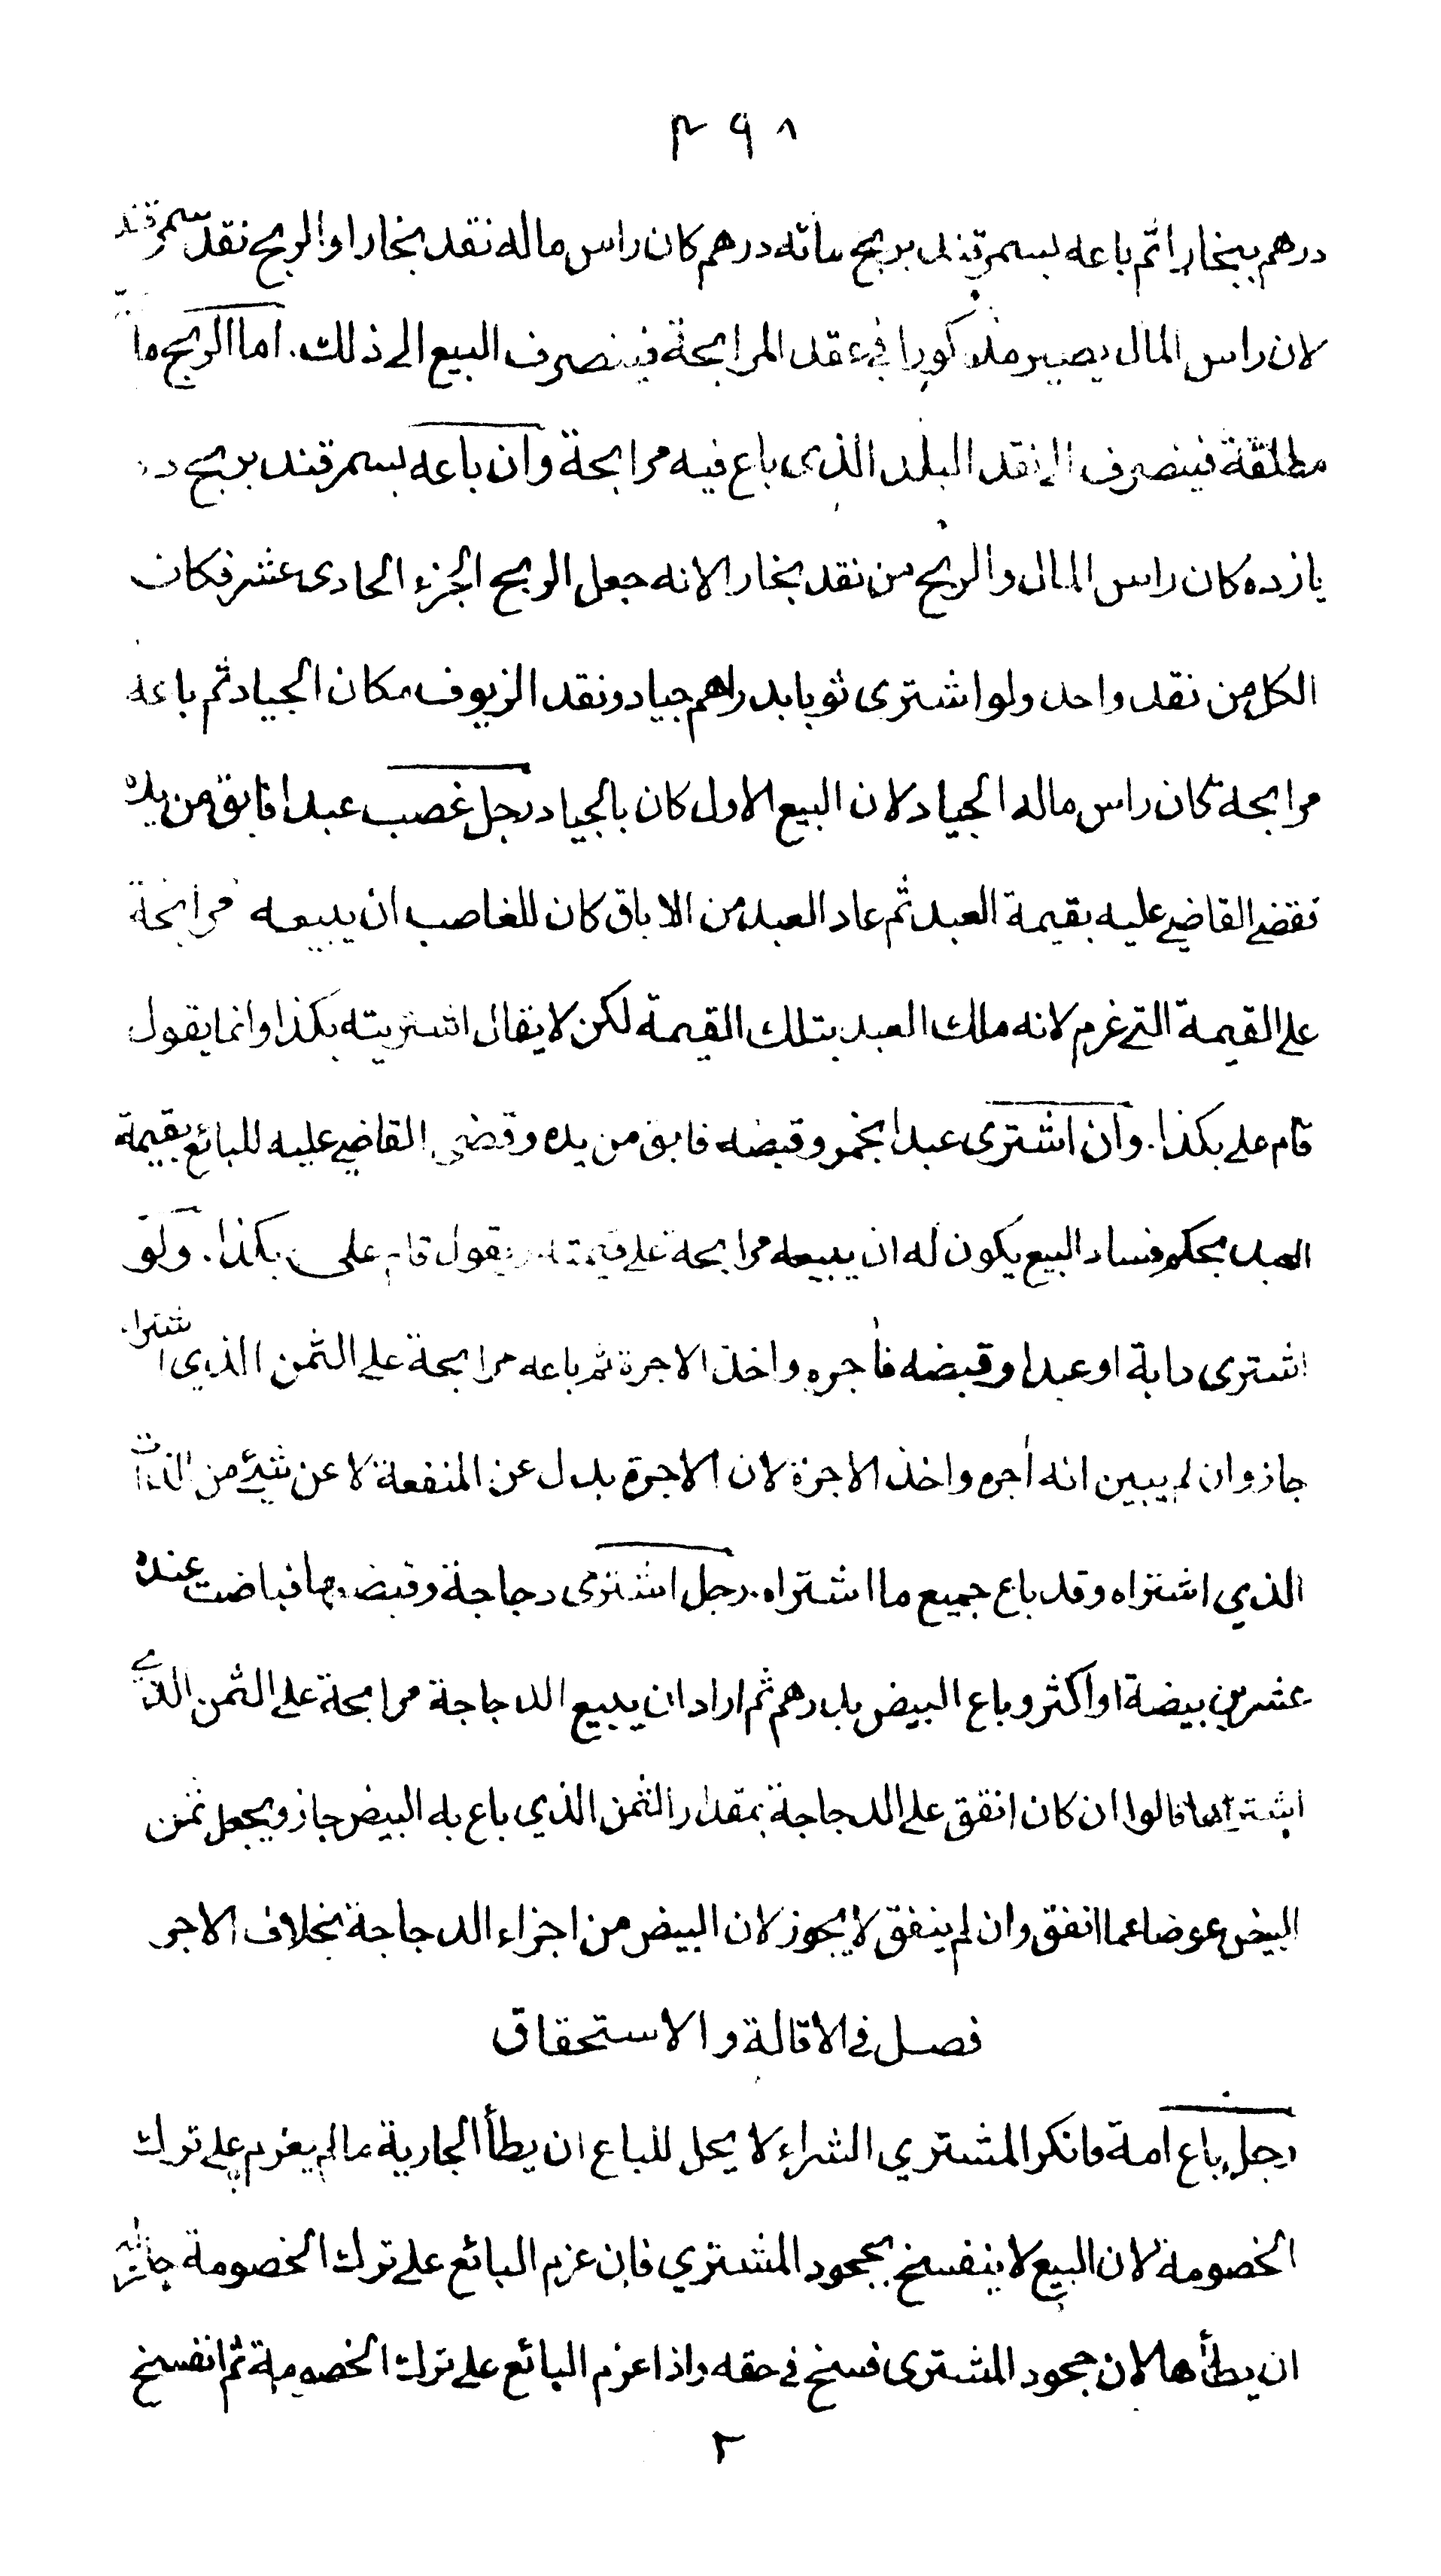 ٢٩٨
درهم ببخارا ثم باعه بسمرقند بربح مائه درهم كان راس ماله نقد بخارا والربح نقد سمرقند
لان راس المال يصير مذكورا في عقد المرابحة فينصرف البيع الى ذلك. اما الربح ما
مطلقة فينصرف الى نقد البلد الذى باع فيه مرابحة وان باعه بسمرقند بربح ده
يازده كان راس المال والربح من نقد بخارا لانه جعل الربح الجزء الحادى عشر فكان
الكل من نقد واحد ولو اشترى ثوبا بدراهم جياد ونقد الزيوف مكان الجياد ثم باعه
مرابحة كان راس ماله الجياد لان البيع الاول كان بالجياد رجل غصب عبدا فابق من يده
فقضى القاضي عليه بقيمة العبد ثم عاد العبد من الاباق كان للغاصب ان يبيعه مرابحة
على القيمة التي غرم لانه ملك العبد بتلك القيمة لكن لا يقال اشتريته بكذا وانما يقول
قام علي بكذا. وان اشترى عبدا بخمر وقبضه فابق من يده وقضى القاضي عليه للبائع بقيمة
العبد بحكم فساد البيع يكون له ان يبيعه مرابحة على قيمته يقول قام على بكذا. ولو
اشترى دابة او عبدا وقبضه فأجره واخذ الاجرة ثم باعه مرابحة على الثمن الذي اشتراه
جاز وان لم يبين انه أجره واخذ الاجرة لان الاجرة بدل عن المنفعة لا عن شيء من الذات
الذي اشتراه وقد باع جميع ما اشتراه. رجل اشترى دجاجة وقبضها فباضت عنده
عشرين بيضة او اكثر وباع البيض بدرهم ثم اراد ان يبيع الدجاجة مرابحة على الثمن الذي
اشتراها قالوا ان كان انفق على الدجاجة بمقدار الثمن الذي باع به البيض جاز ويجعل ثمن
البيض عوضا عما انفق وان لم ينفق لا يجوز لان البيض من اجزاء الدجاجة بخلاف الاجر
فصل في الاقالة والاستحقاق
رجل باع امة فانكر المشتري الشراء لا يحل للباع ان يطأ الجارية مالم يعزم على ترك
الخصومة لان البيع لا ينفسخ بجحود المشتري فان عزم البائع على ترك الخصومة جاز له
ان يطأها لان جحود المشترى فسخ في حقه واذا عزم البائع على ترك الخصومة ثم انفسخ
٢